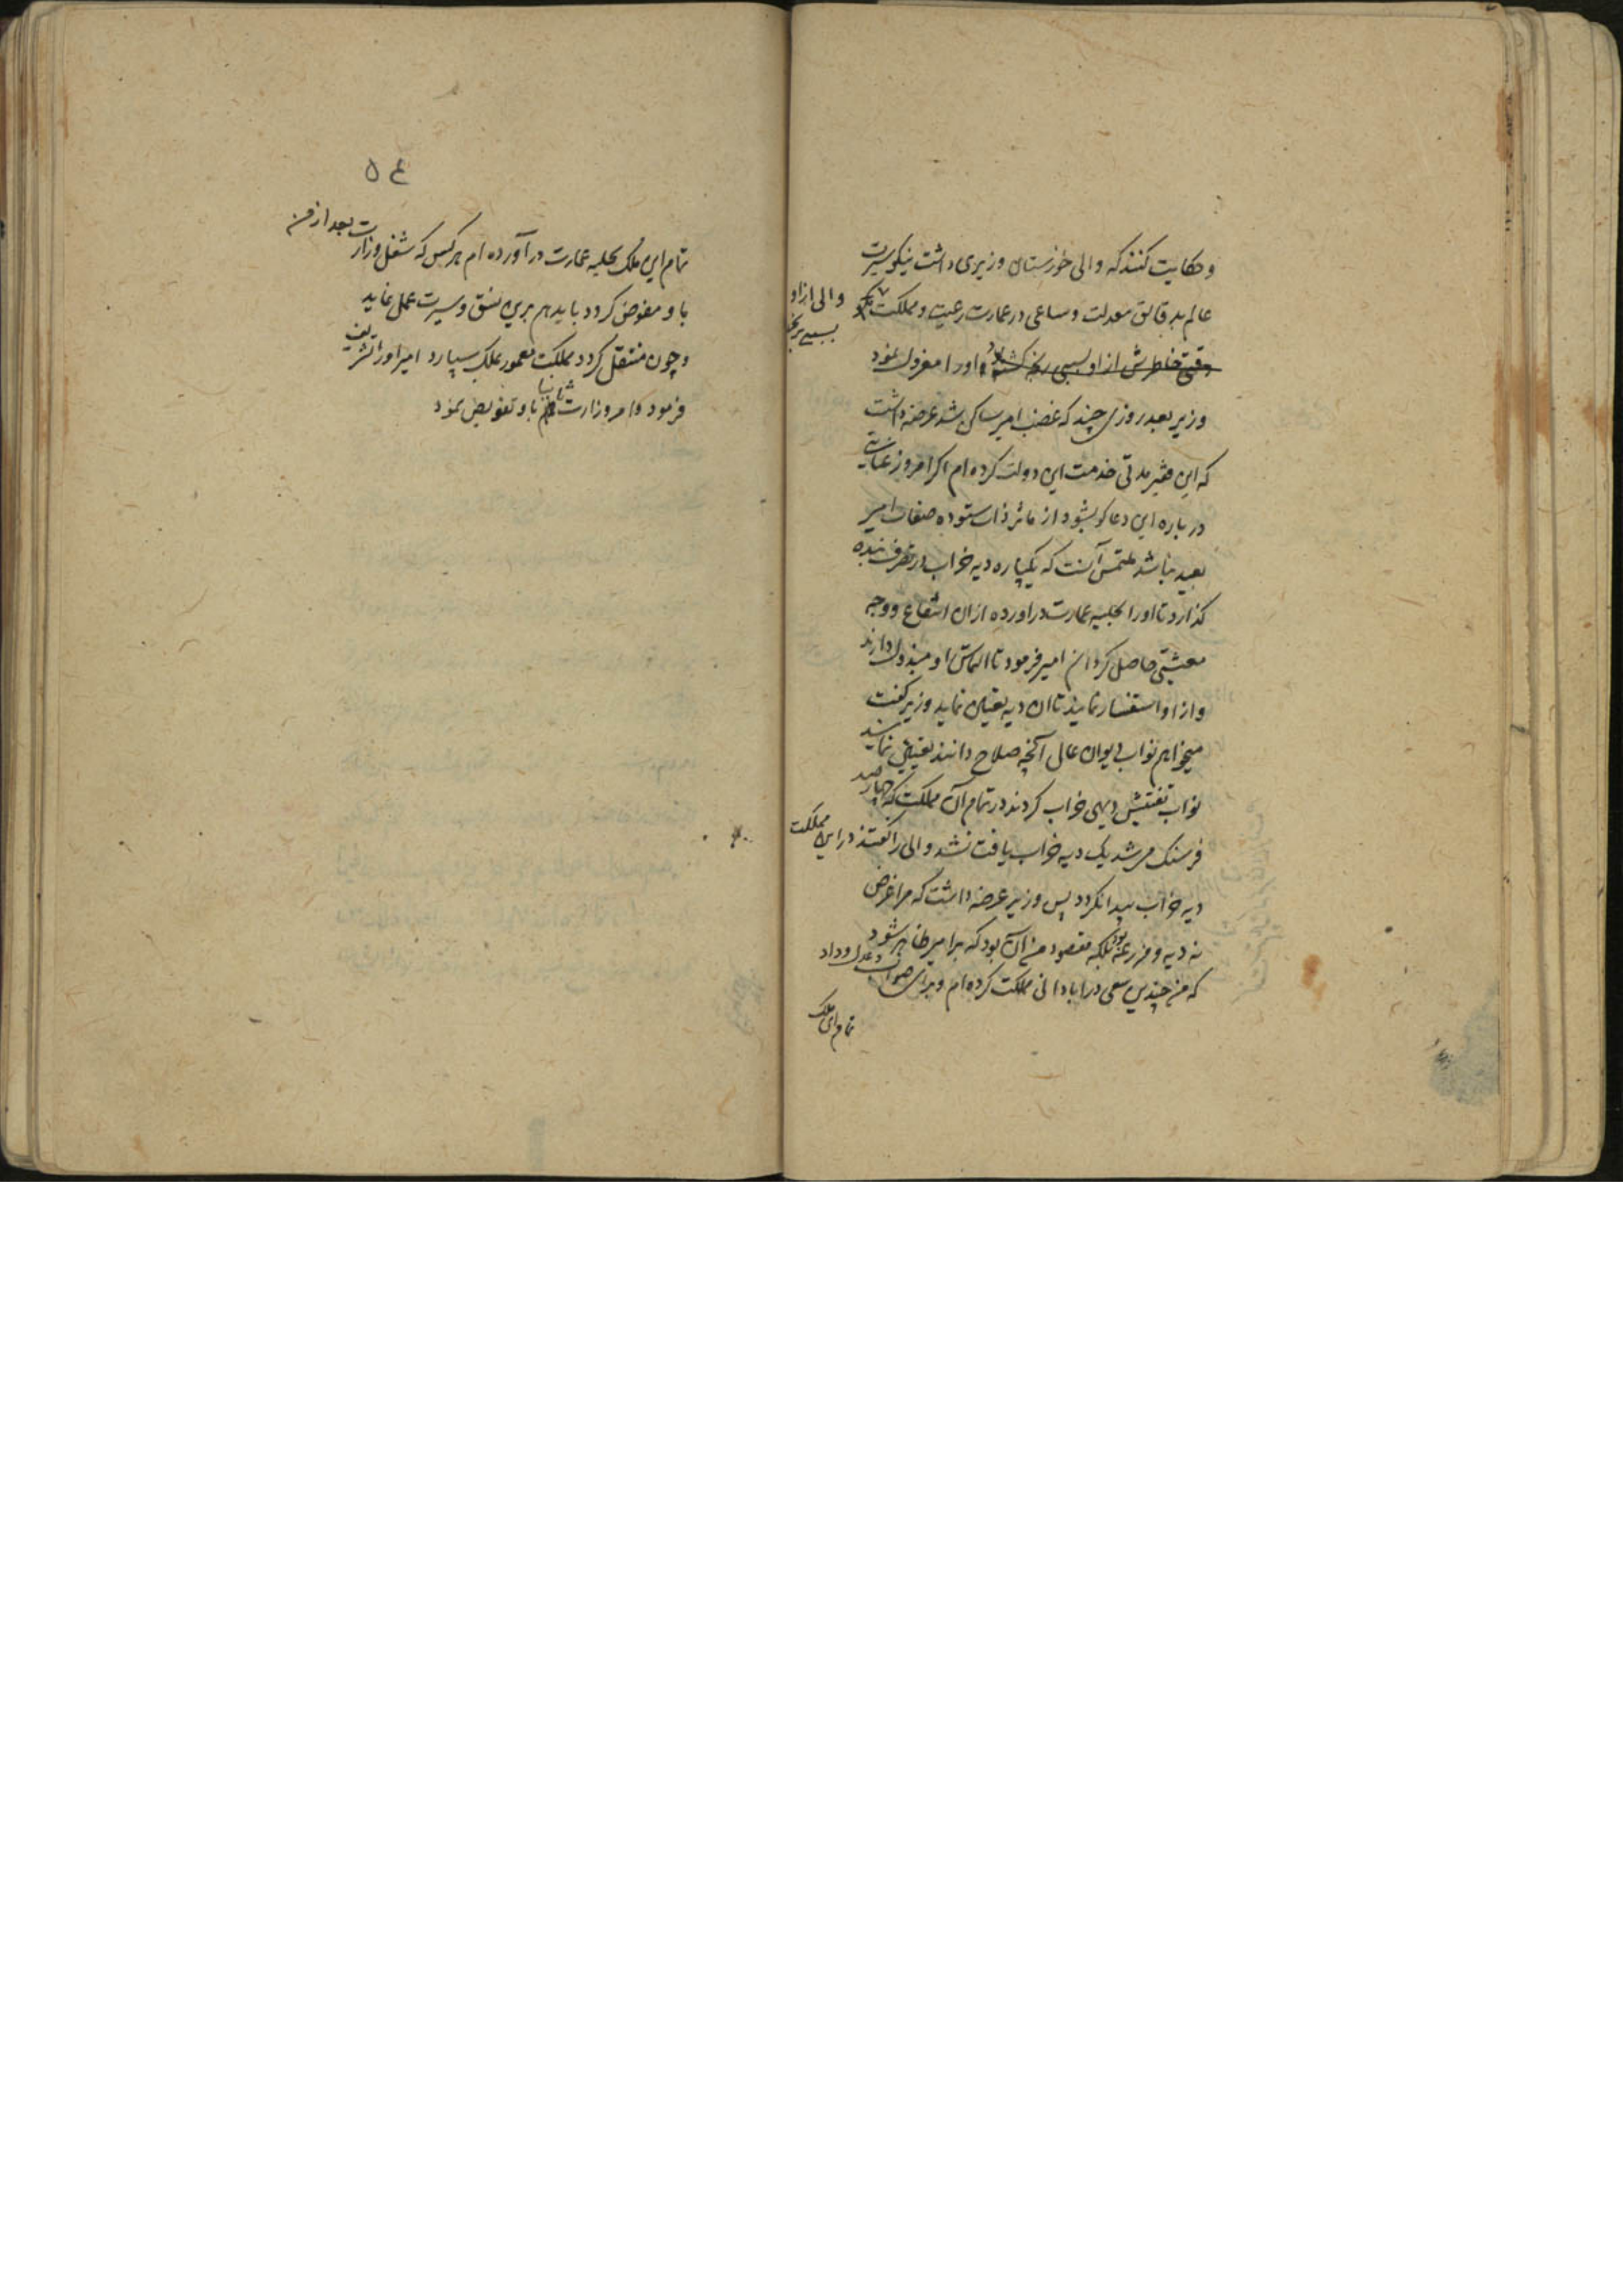 و حکایت کنند که والی خوزستان وزیری داشت نیکو سیرت
عالم بدقایق معدلت و ساعی در عمارت رعیت و مملکت
والی از او
بسببی
وقتی خاطرش از او بسببی رنجه کشته اورا معزول نمود
وزیر بعد روزی چند که غضب امیر ساکن شد عرضه داشت
که این فقیر مدتی خدمت این دولت کرده ام اکر امروز عنایتی
در باره این دعاکو بشود از مآثر ذات ستوده صفات امیر
بعید نباشد ملتمس آنست که یکپاره دیه خراب در تصرف بنده
کذارد تا اورا بحلیه عمارت دراورده ازان انتفاع و وجه
معیشتی حاصل کردانم امیر فرمود تا التماس او مبذول دارند
و از او استفسار نمایند تا ان دیه تعیین نماید وزیر کفت
میخواهم نواب دیوان عالی آنچه صلاح دانند تعیین نمایند
نواب تفتیش دیهی خراب کردند در تمام آن مملکت که چهار صد
فرسنک میشد یک دیه خراب یافت نشد والی را کفتند در این مملکت
دیه خراب پیدا نکردد پس وزیر عرضه داشت که مرا غرض
نه دیه و مزرعه بود بلکه مقصود من آن بود که بر امیر ظاهر شود
که من چندین سعی در ابادانی مملکت کرده ام و برای صواب و عدل و داد
تمام این ملک
۵۴
تمام این ملک بحلیه عمارت در آورده ام هر کس که شغل وزارت بعد از من
باو مفوض کردد باید هم برین نسق و سیرت عمل نماید
و چون منتقل کردد مملکت معمور بملک سپارد امیر اورا تشریف
فرمود و امر وزارت ثانیا باو تفویض نمود